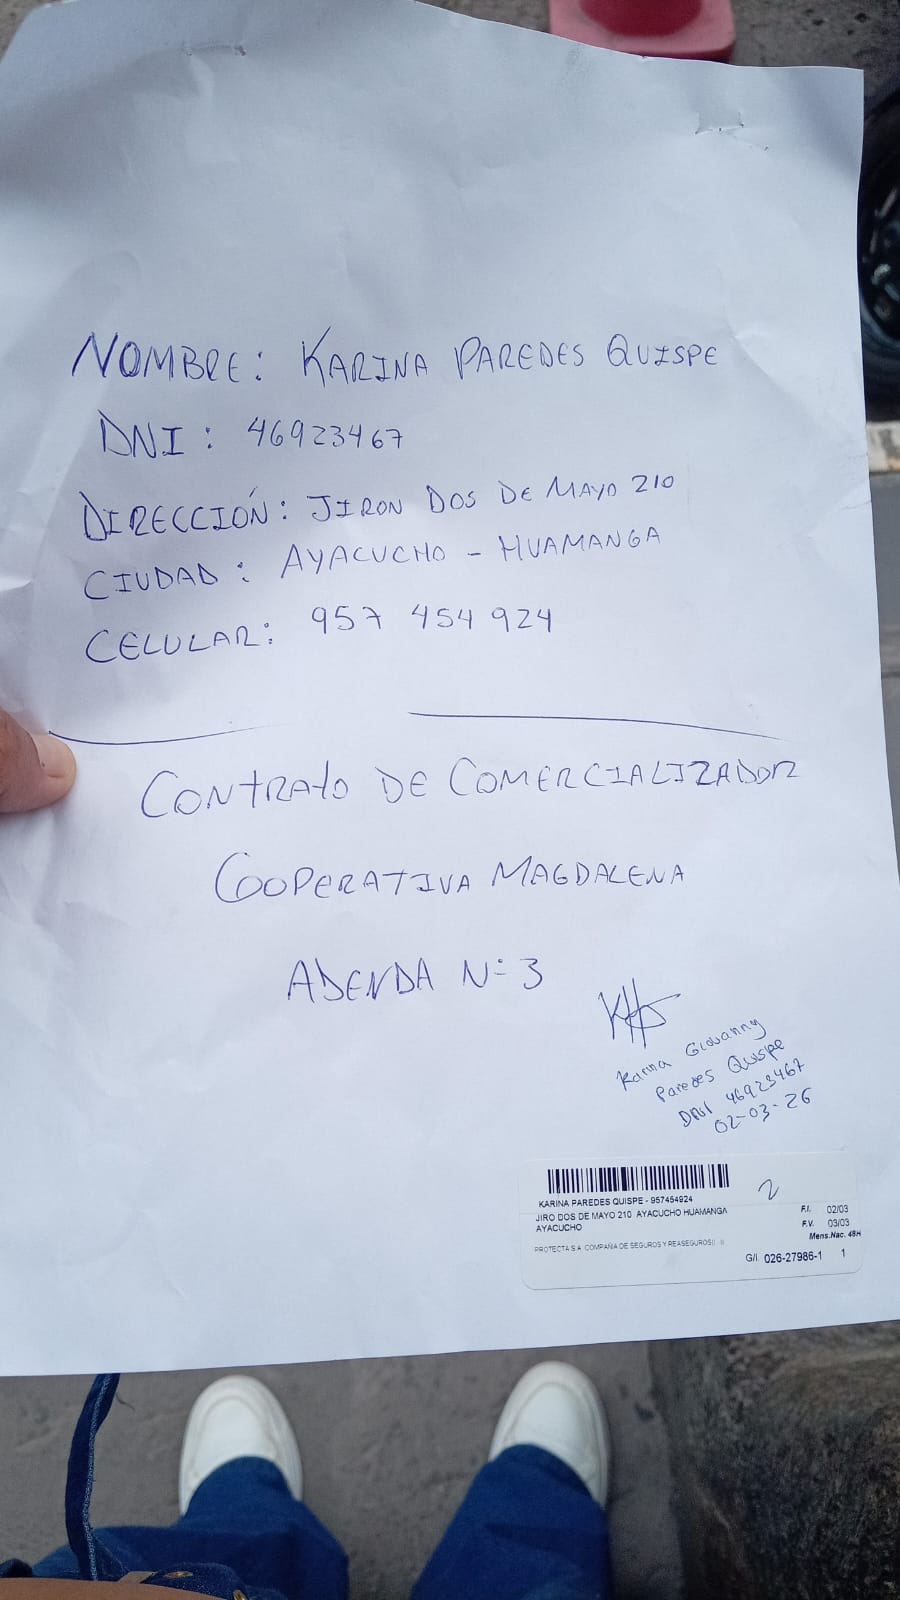 NOMBRE: KARINA PAREDES QUISPE
DNI: 46923467
DIRECCIÓN: JIRON DOS DE MAYO 210
CIUDAD: AYACUCHO - HUAMANGA
CELULAR: 957 454 924
CONTRATO DE COMERCIALIZADOR
COOPERATIVA MAGDALENA
ADENDA N: 3
Karina Giovanny
Paredes Quispe
DNI 46923467
02-03-26
2
KARINA PAREDES QUISPE - 957454924
JIRO DOS DE MAYO 210 AYACUCHO HUAMANGA
AYACUCHO
PROTECTA S.A COMPAÑIA DE SEGUROS Y REASEGUROS
F.I. 02/03
F.V. 03/03
Mens.Nac. 48H
G/I 026-27986-1 1